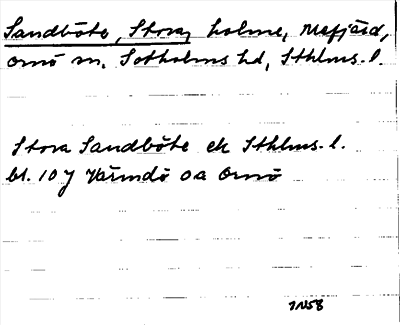 Sandböte, Stora, holme, Mefjärd,
Ornö sn, Sotholms hd, Sthlms. l.
Stora Sandböte ek Sthlms. l.
bl. 107 Värmdö oa Ornö
JN58